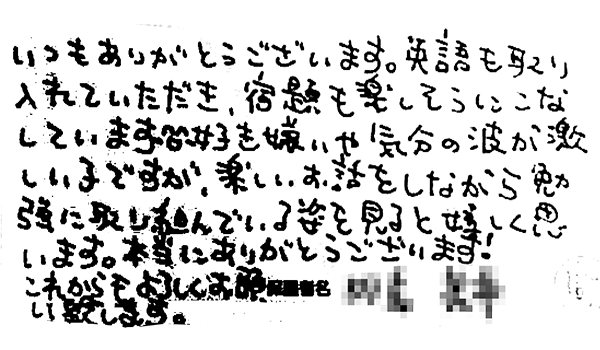 いつもありがとうございます。英語も取り
入れていただき、宿題も楽しそうにこな
しています。好き嫌いや気分の波が激
しい子ですが、楽しいお話をしながら勉
強に取り組んでいる姿を見ると嬉しく思
います。本当にありがとうございます!
これからもよろしくお願 保護者名
い致します。